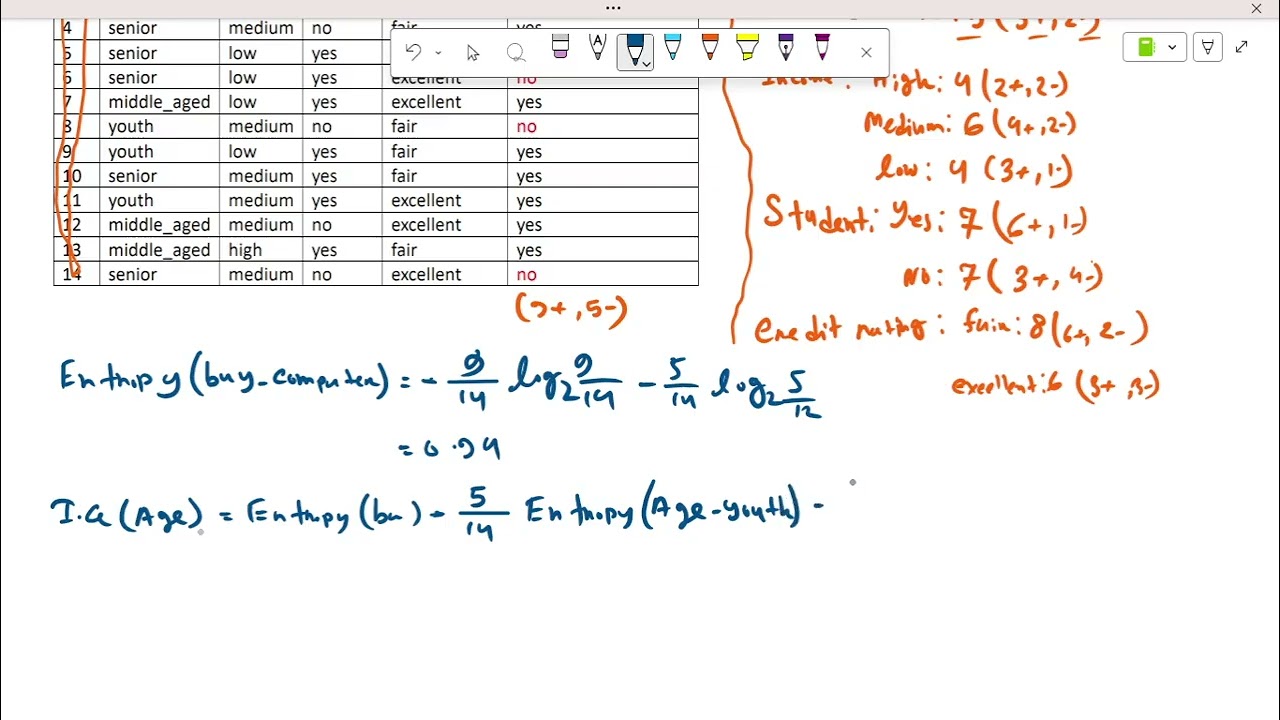 4 senior medium no fair yes
5 senior low yes
6 senior low yes excellent no
7 middle_aged low yes excellent yes
8 youth medium no fair no
9 youth low yes fair yes
10 senior medium yes fair yes
11 youth medium yes excellent yes
12 middle_aged medium no excellent yes
13 middle_aged high yes fair yes
14 senior medium no excellent no
(9+, 5-)
Income: High: 4 (2+, 2-)
Medium: 6 (4+, 2-)
low: 4 (3+, 1-)
Student: Yes: 7 (6+, 1-)
No: 7 (3+, 4-)
Credit rating: fair: 8 (6+, 2-)
excellent: 6 (3+, 3-)
Entropy(buy-computer) = - 9/14 log2 9/14 - 5/14 log2 5/12
= 0.94
I.G (Age) = Entropy (bu) - 5/14 Entropy (Age-youth) -